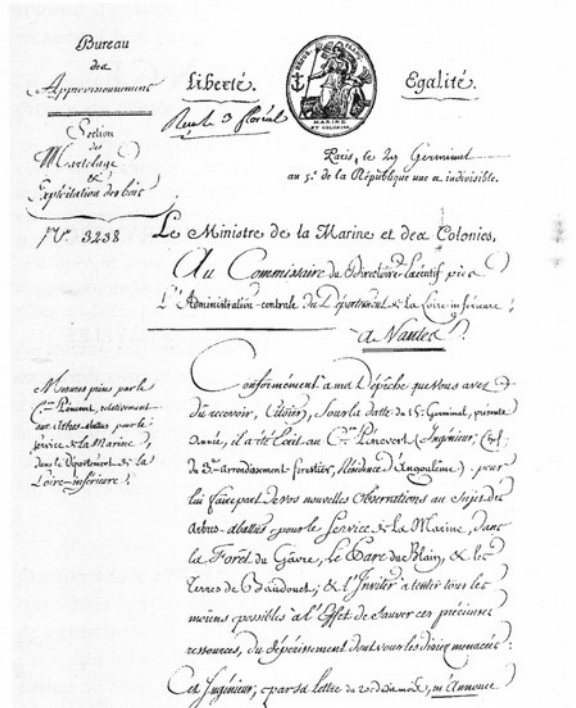 Bureau
des
Approvisionnemens
Section
des
Martelage
&
Exploitation des bois
N.º 3238
Liberté.
Egalité.
Reçu le 3 floréal
MARINE
ET COLONIES
Paris, le 29 Germinal
an 5.e de la République une et indivisible.
Le Ministre de la Marine et des Colonies,
Au Commissaire du Directoire Exécutif près
L'Administration-centrale du Département de la Loire inférieure;
a Nantes.
Mesures prises par le
C.en Pinevert, relativement
aux Arbres abattus pour le
service de la Marine,
dans le Département de la
Loire-inférieure;
Conformément a ma Dépêche que Vous avez
du recevoir, Citoyen, sous la datte du 15 Germinal, présente
année, il a été Ecrit au C.en Pinevert (Ingénieur,
du 3.e arrondissement-forestier, Résidence d'Angoulême) pour
lui faire part de vos nouvelles Observations au sujet des
Arbres-abattus pour le Service de la Marine, dans
la Forêt du Gâvre, le Parc de Blain, & les
Terres de Baudouet; & l'Inviter a tenter tous les
moiens possibles a l'Effet de Sauver ces précieuses
ressources, du dépérissement dont vous les disiez menacées:
Cet Ingénieur, par sa lettre du 20 de ce mois, m'Annonce